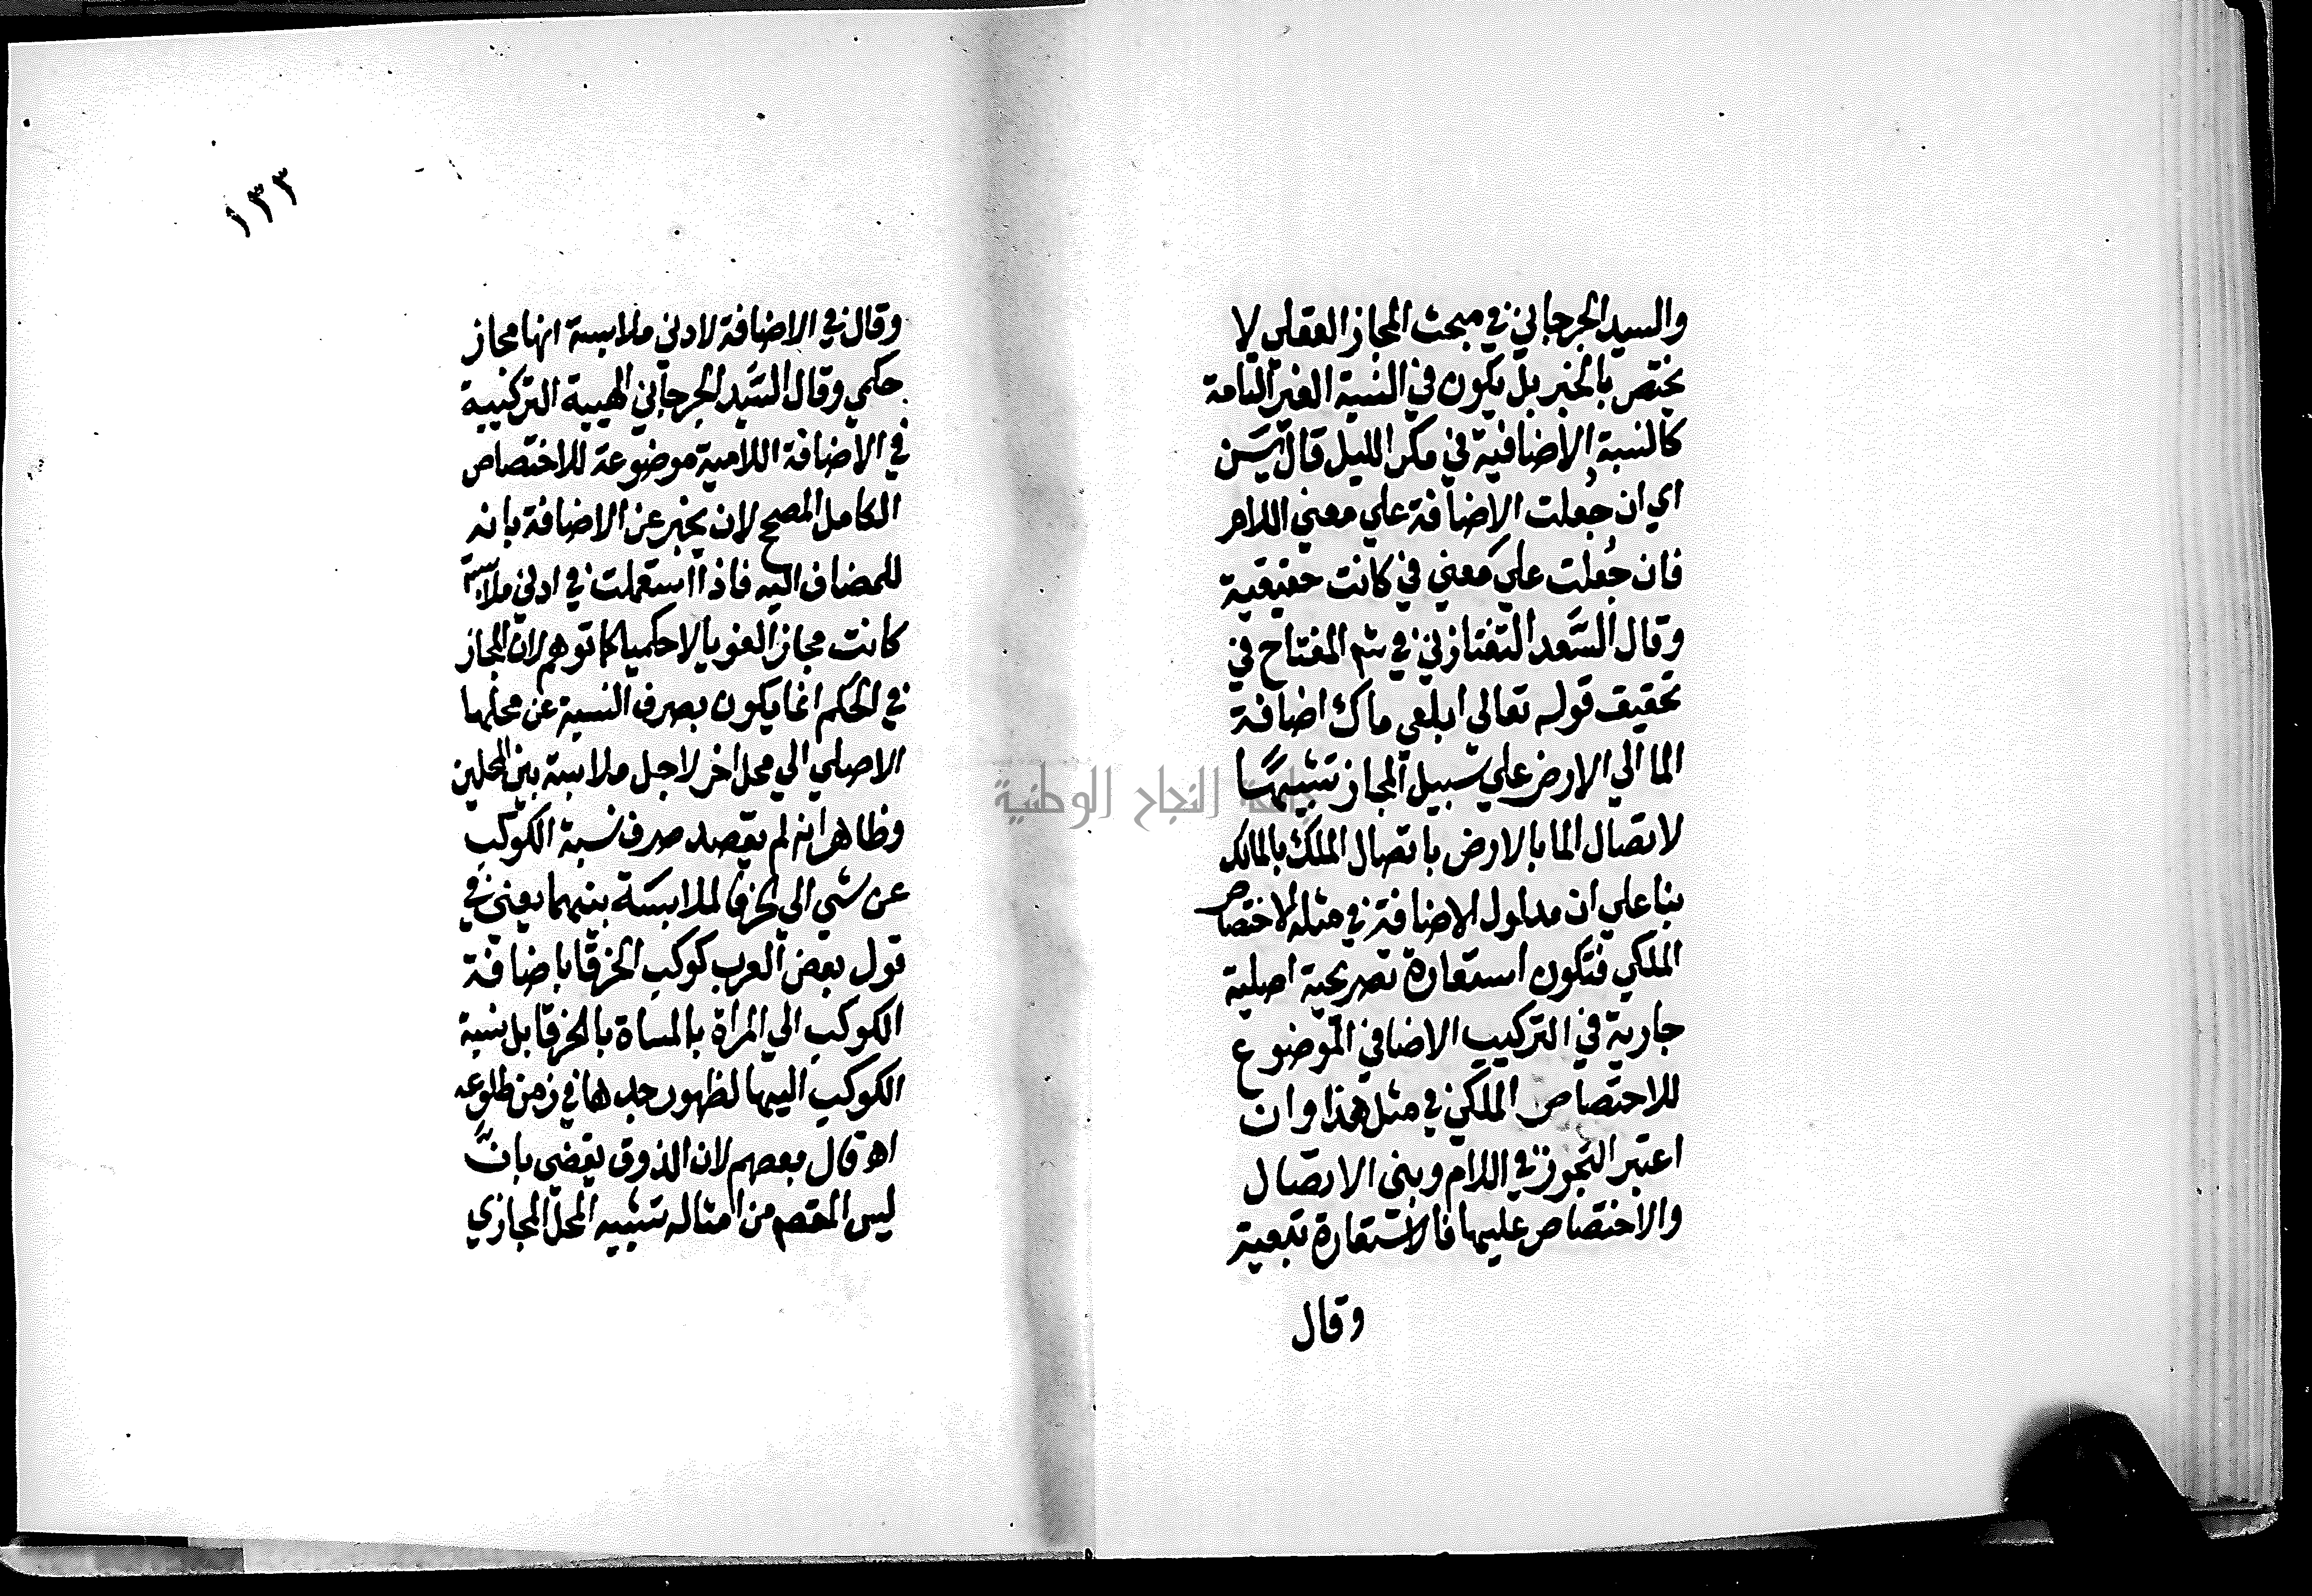 والسيد الجرجاني في مبحث المجاز العقلي لا
يختص بالخبر بل يكون في النسبة الغير التامة
كالنسبة الاضافية في مكر الليل قال يسن
اي ان جُعلت الاضافة علي معني اللام
فان جُعلت علي معني في كانت حقيقية
وقال السَّعد التفتازني في شم المفتاح في
تحقيق قوله تعالى ابلعي ماك اضافة
الما الي الارض علي سبيل المجاز تشبيهًا
لاتصال الما بالارض باتصال الملك بالمالك
بنا علي ان مدلول الاضافة في مثله الاختصاص
الملكي فتكون استعارة تصريحية اصلية
جارية في التركيب الاضافي الموضوع
للاختصاص الملكي في مثل هذا وان
اعتبر التجوز في اللام وبني الاتصال
والاختصاص عليها فالاستعارة تبعية
وقال
١٣٣
وقال في الاضافة لادني ملابسة انها مجاز
حكمي وقال السَّيد الجرجاني الهيية التركيبية
في الاضافة اللامية موضوعة للاختصاص
الكامل المصحح لان يخبر عن الاضافة بانه
للمضاف اليه فاذا استعملت في ادني ملابسة
كانت مجاز الغويا لا حكميا كما توهم لان المجاز
في الحكم انما يكون بصرف النسبة عن محلها
الاصلي الي محل اخر لاجل ملابسة بين المحلين
وظاهر انه لم يقصد صرف نسبة الكوكب
عن شي الي الخرقا لملابسة بينهما يعني في
قول بعض العرب كوكب الخرقا باضافة
الكوكب الي المراة بالمساة بالخرقا بل نسبة
الكوكب اليها لظهور جدها في زمن طلوعه
اهـ قال بعصهم لان الذوق يقضي بانَّ
ليس المقصم من امثاله تشبيه المحل المجازي
جامعة النجاح الوطنية